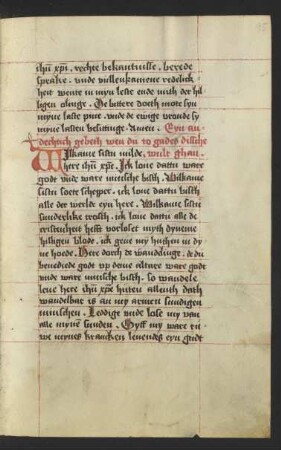 ihū xp̄i. rechte bekantnisse. berede
sprake. vnde vullenkamene redelich
heit wente in myn leste ende vnde der hil
ligen olinge. De bittere doeth mote syn
myne laste pine. vnde de ewige vroude sy
myne lasten besittinge. Amen. Eyn an
dechtich gebeth wen du to gades dissche
Wilkame sistu milde. wult ghan.
here ihū xp̄e. Ick loue dattu ware
godt vnde ware minsche bist. Wilkame
sistu soete schepper. ick loue dattu bist
alle der werlde eyn here. Wilkame sistu
sunderlike trost. ick loue dattu alle de
cristenheit hefft vorloset myth dyneme
hilligen blode. ick geue my huten in dy
ne hoede. Here dorch de wandelinge. de du
benediede godt vp deme altare ware godt
vnde ware minsche bist. so wandele
leue here ihū xp̄e huten allent dath
wandelbar is an my armen sundigen
minschen. Leddige vnde lose my van
alle myne sunden. Gyff my ware ru
we mynes krancken leuendes eyn gudt